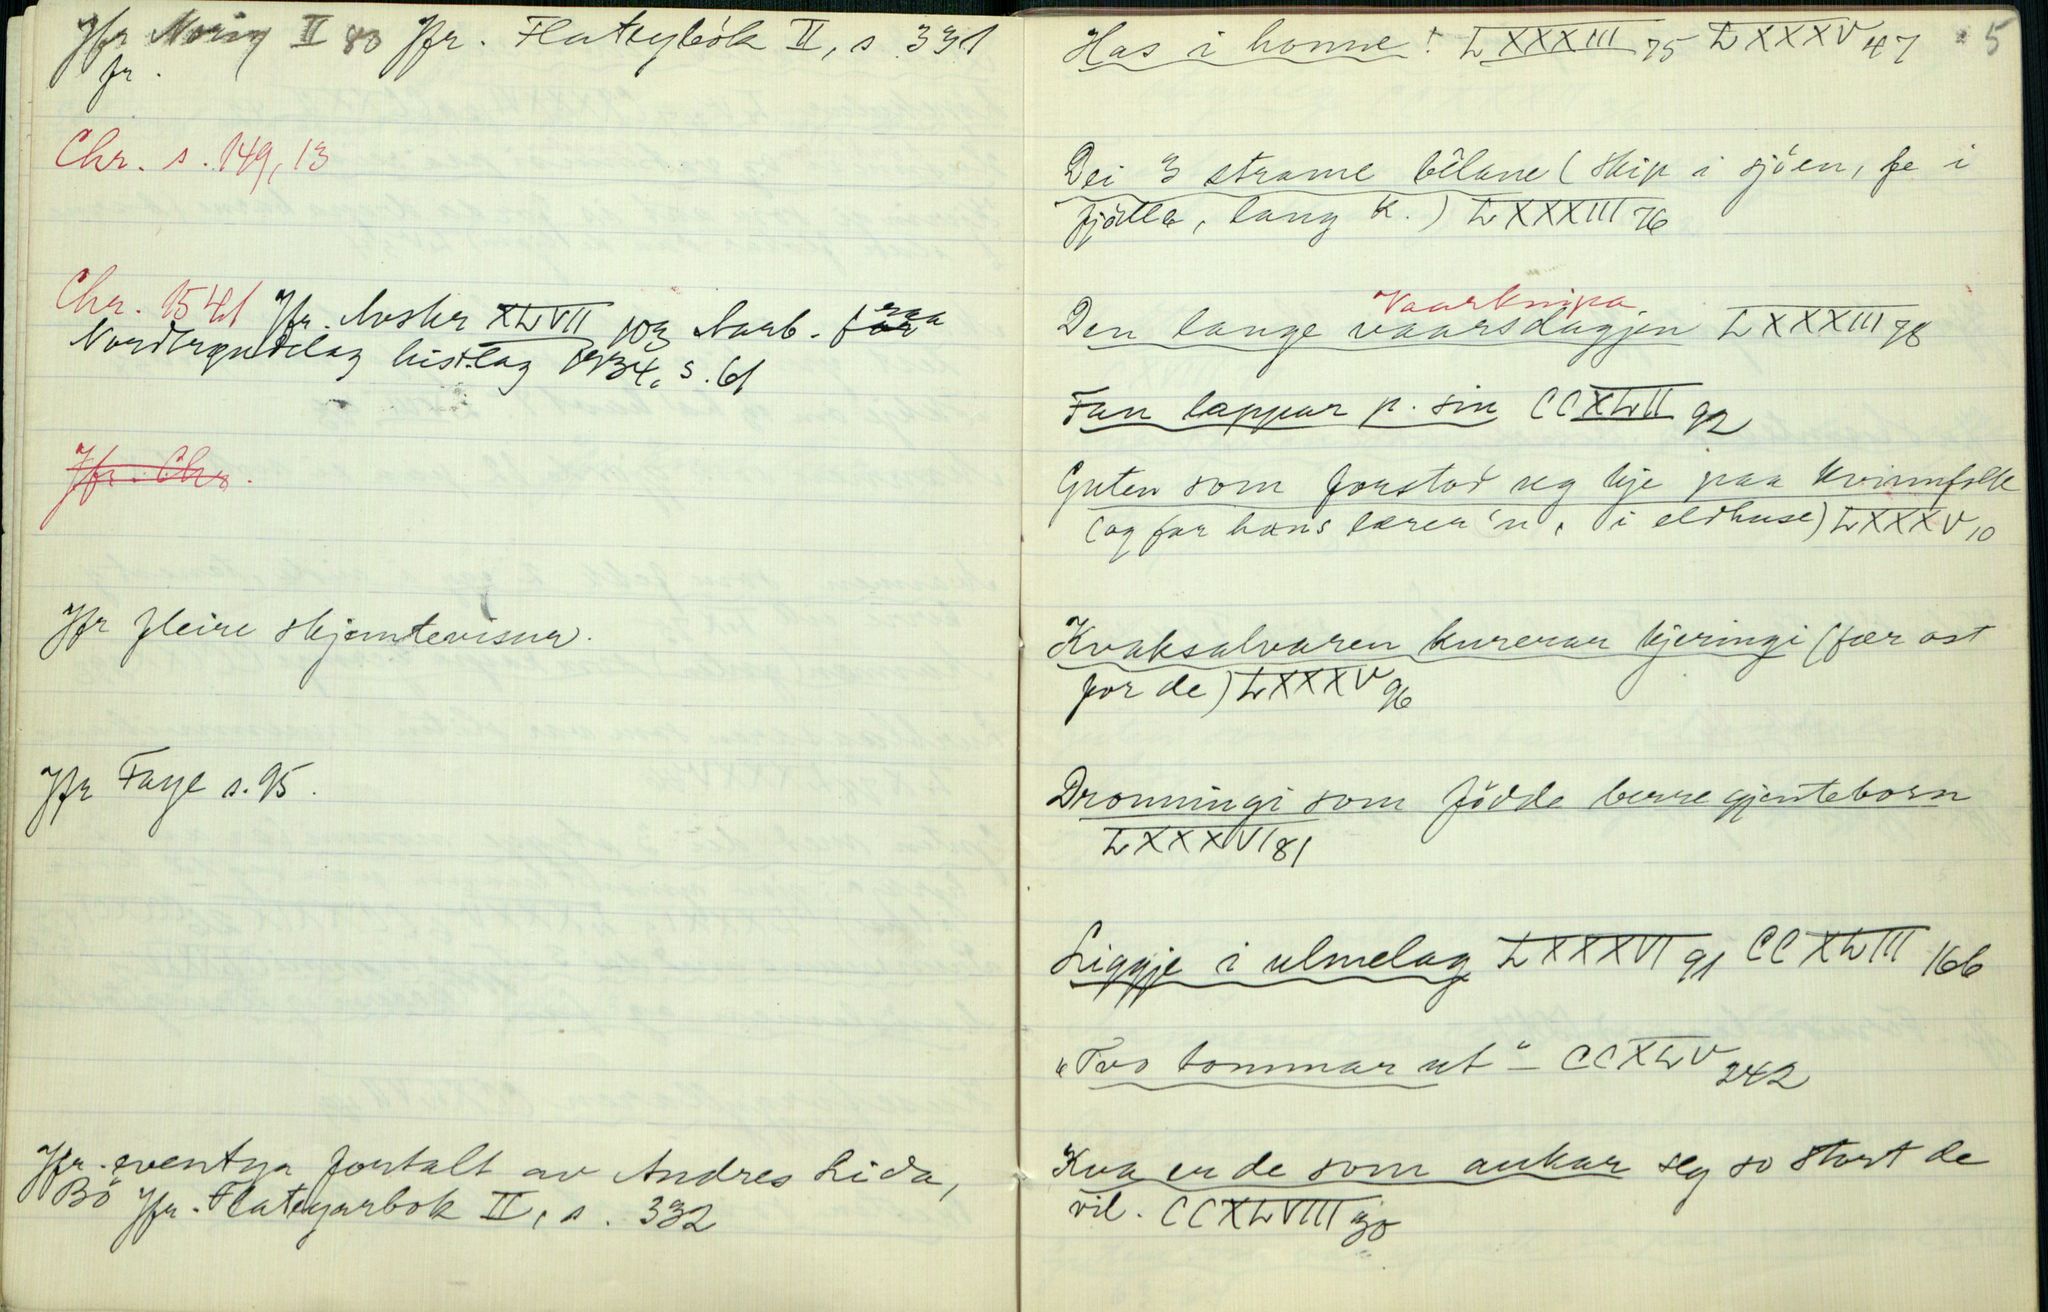 Jfr Norig II 80 Jfr. Flateybók II, s. 331
fr.
Chr. s. 149, 13
Chr. 1541 Jfr. Avskr XLVII 103 Aarb. fraa
Nordbyndelag hist.lag 1934, s. 61
Jfr. Chr.
Jfr fleire skjemtevisur.
Jfr Faye s. 95.
Jfr. eventyr fortalt av Andres Lida,
Bö Jfr. Flateyarbok II, s. 332
Has i honne! LXXXIII 75 LXXXV 47 5
Dei 3 strame bêlane (skip i sjöen, fe i
fjölle, lang k.) LXXXIII 76
Vaarknipa
Den lange vaarsdagjen LXXXIII 78
Fan lappar p. sin CCXLII 92
Guten som forstod seg kje paa kvinnfolk
(og far hans lærer 'n, i eldhuse) LXXXV 10
Kvaksalvaren kurerar kjeringi (fær ost
for de) LXXXV 96
Dronningi som födde berre gjenteborn
LXXXVI 81
Liggje i ulmelag LXXXVI 91 CCXLIII 166
"Tvo tommar ut" – CCXLV 242
Kva er de som aukar seg so stort de
vil. CCXLVIII 30